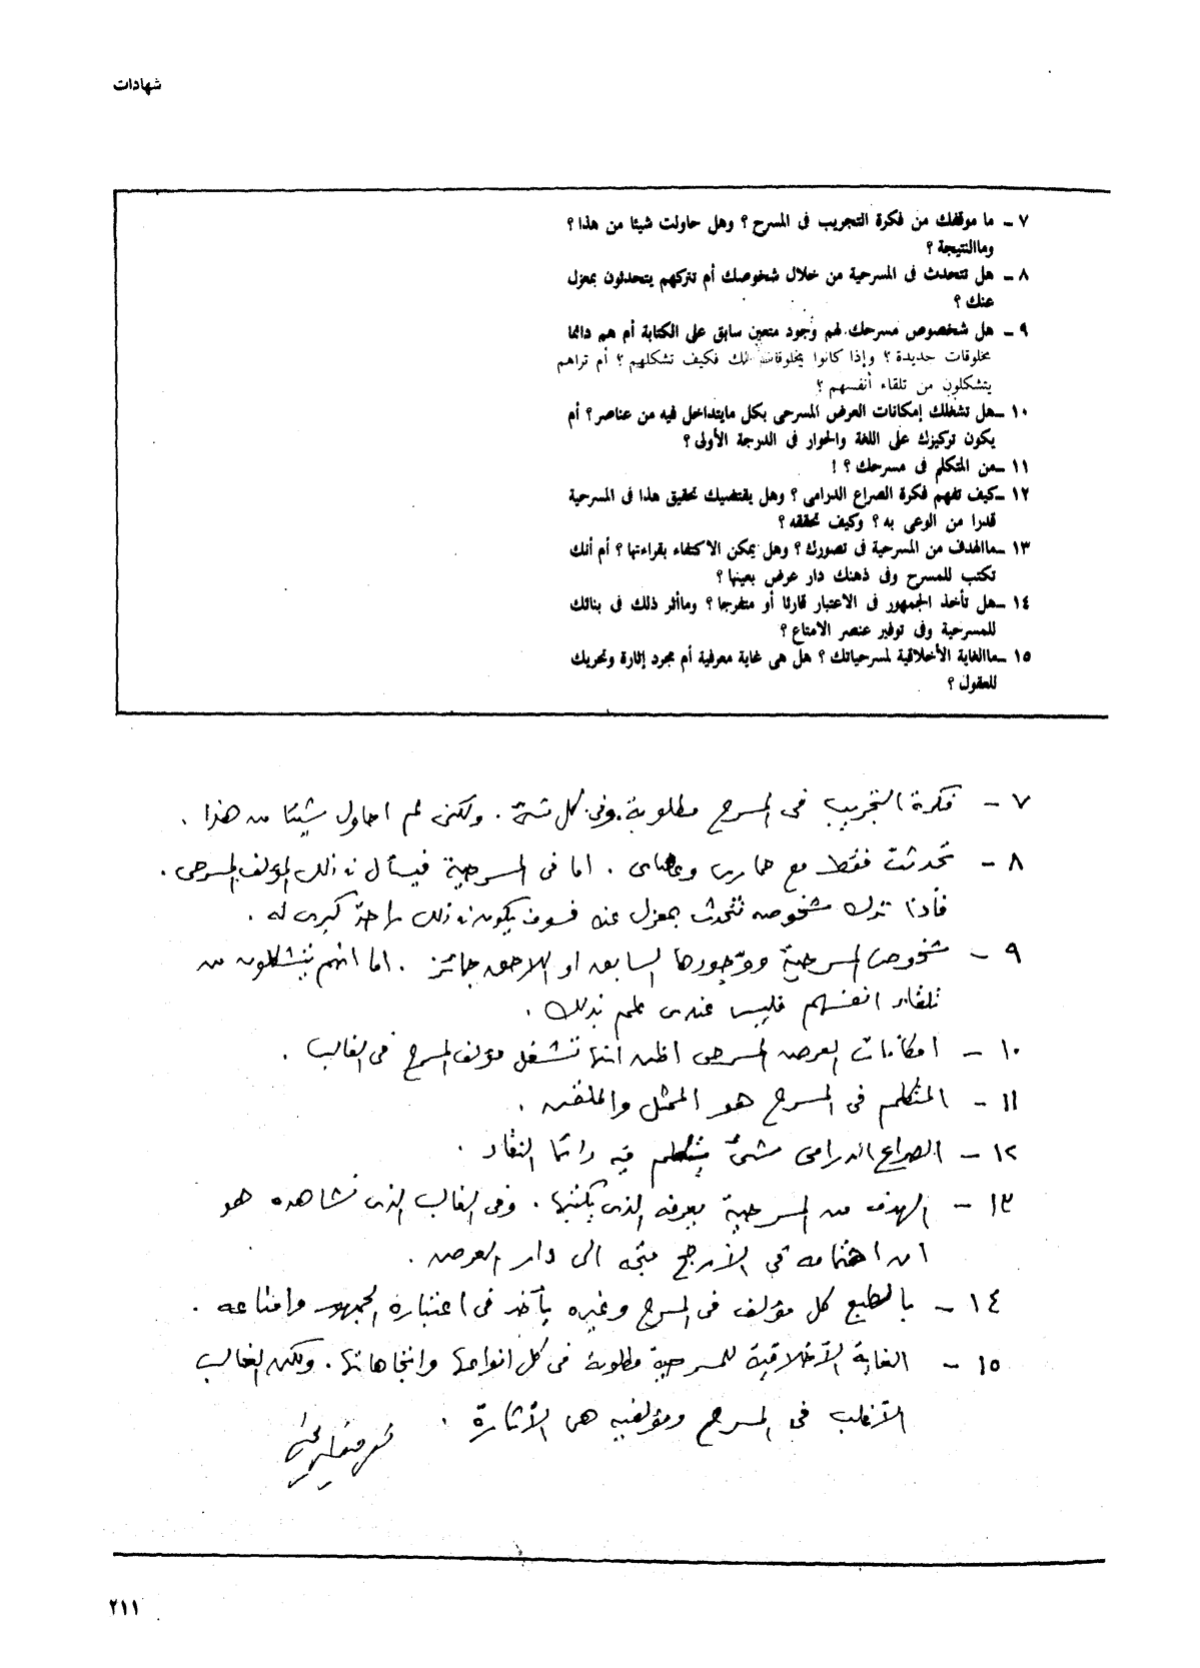 شهادات
٧ ـ ما موقفك من فكرة التجريب فى المسرح ؟ وهل حاولت شيئا من هذا ؟
وماالنتيجة ؟
٨ ـ هل تتحدث فى المسرحية من خلال شخوصك أم تتركهم يتحدثون بمعزل
عنك ؟
٩ ـ هل شخصوص مسرحك لهم وجود متعين سابق على الكتابة أم هم دائما
مخلوقات جديدة ؟ وإذا كانوا مخلوقات لك فكيف تشكلهم ؟ أم تراهم
يتشكلون من تلقاء أنفسهم ؟
١٠ ـ هل تشغلك إمكانات العرض المسرحى بكل مايتداخل فيه من عناصر ؟ أم
يكون تركيزك على اللغة والحوار فى الدرجة الأولى ؟
١١ ـ من المتكلم فى مسرحك ؟ !
١٢ ـ كيف تفهم فكرة الصراع الدرامى ؟ وهل يقتضيك تحقيق هذا فى المسرحية
قدرا من الوعى به ؟ وكيف تحققه ؟
١٣ ـ ماالهدف من المسرحية فى تصورك ؟ وهل يمكن الاكتفاء بقراءتها ؟ أم أنك
تكتب للمسرح وفى ذهنك دار عرض بعينها ؟
١٤ ـ هل تأخذ الجمهور فى الاعتبار قارئا أو متفرجا ؟ وماأثر ذلك فى بنائك
للمسرحية وفى توفير عنصر الامتاع ؟
١٥ ـ ماالغاية الأخلاقية لمسرحياتك ؟ هل هى غاية معرفية أم مجرد إثارة وتحريك
للعقول ؟
٧ - فكرة التجريب فى المسرح مطلوبة وفى كل شئ . ولكنى لم احاول شيئا من هذا .
٨ - تحدثت فقط مع حمارى وعصاى . اما فى المسرحية فيسأل فى ذلك المؤلف المسرحى .
فأذا ترك شخوصه تتحدث بمعزل عنه فسوف يكون فى ذلك راحة كبرى له .
٩ - شخوص المسرحية ووجودها السابق او اللاحق جائز . اما انهم يتشكلون من
تلقاء انفسهم فليس عندى علم بذلك .
١٠ - امكانات العرض المسرحى اظن انها تشغل مؤلف المسرح فى الغالب .
١١ - المتكلم فى المسرح هو الممثل والملقن .
١٢ - الصراع الدرامى شئ يتكلم فيه دائما النقاد .
١٣ - الهدف من المسرحية يعرفه الذى يكتبها . وفى الغالب الذى نشاهده هو
ان اهتمامه فى الأرجح متجه الى دار العرض .
١٤ - بالطبع كل مؤلف فى المسرح وغيره يأخذ فى اعتباره الجمهور وامتاعه .
١٥ - الغاية الأخلاقية للمسرحية مطلوبة فى كل انواعها واتجاهاتها . ولكن الغالب
الأغلب فى المسرح ومؤلفيه هى الأثارة .
٢١١